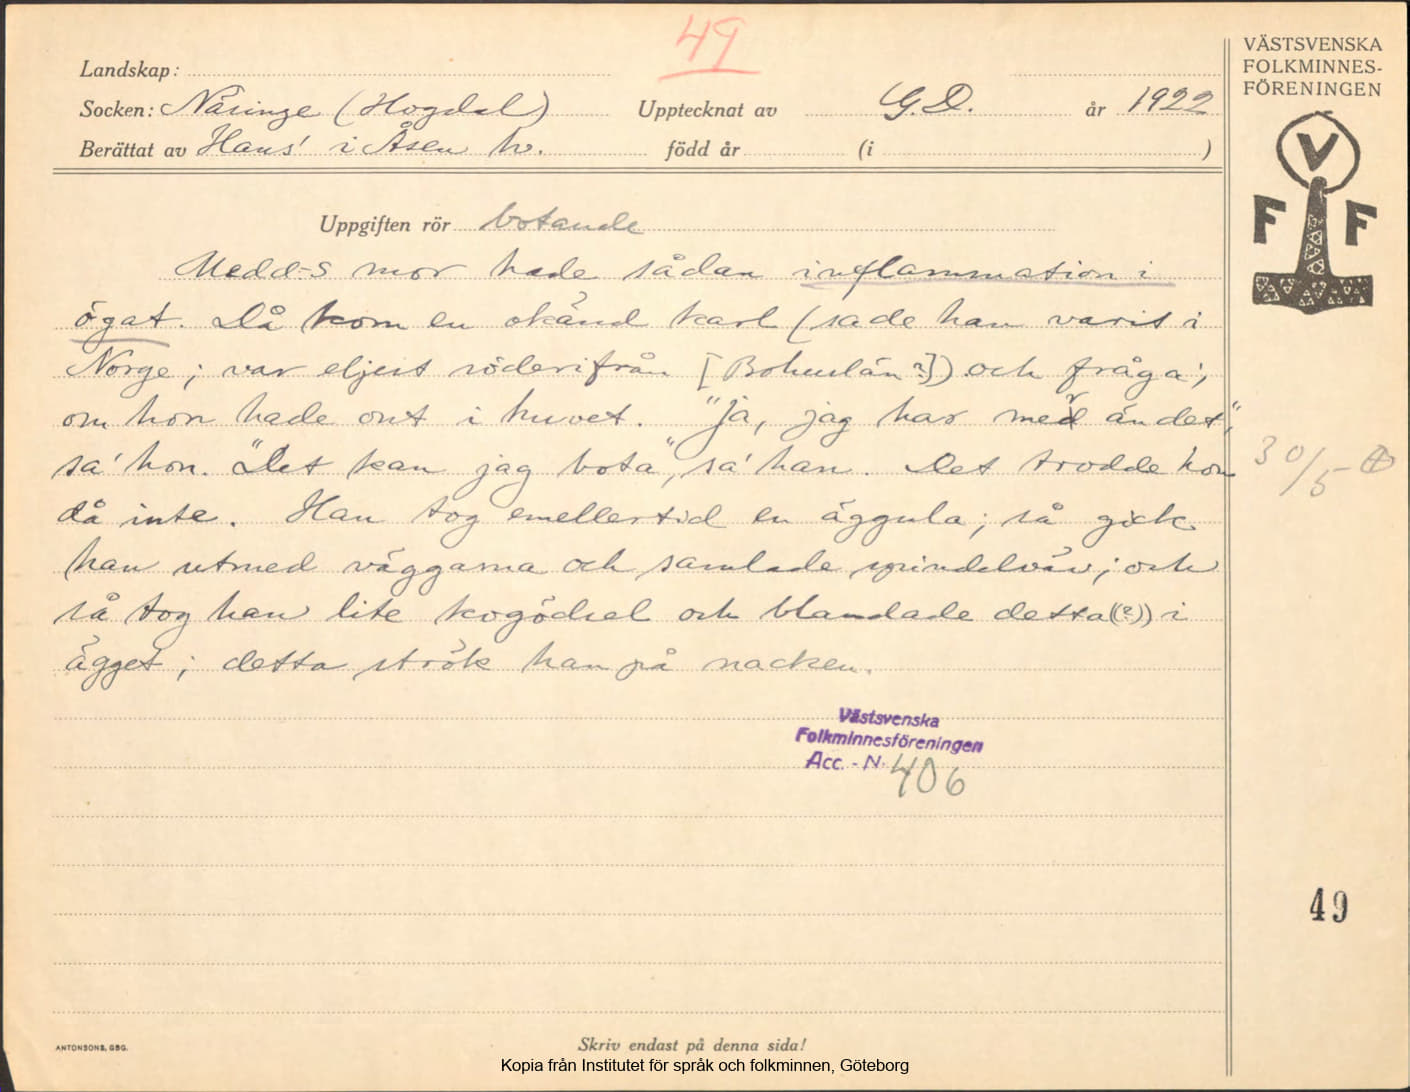 49
VÄSTSVENSKA
FOLKMINNES-
FÖRENINGEN
V
F F
Landskap:
Socken: Näsinge (Hogdal) Upptecknat av G.D. år 1922
Berättat av Hans' i Åsen hv. född år (i )
Uppgiften rör botande
Medd-s mor hade sådan inflammation i
ögat. Då kom en okänd karl (sade han varit i
Norge; var eljest söderifrån [Bohuslän?]) och fråga',
om hon hade ont i huvet. "Ja, jag har mer än det",
sa' hon. "Det kan jag bota", sa' han. Det trodde hon
då inte. Han tog emellertid en äggula; så gick
han utmed väggarna och samlade spindelväv; och
så tog han lite kogödsel och blandade detta((?)) i
ägget; detta strök han på nacken.
30/5
Västsvenska
Folkminnesföreningen
Acc. - N. 406
49
ANTONSONS, GBG.
Skriv endast på denna sida!
Kopia från Institutet för språk och folkminnen, Göteborg